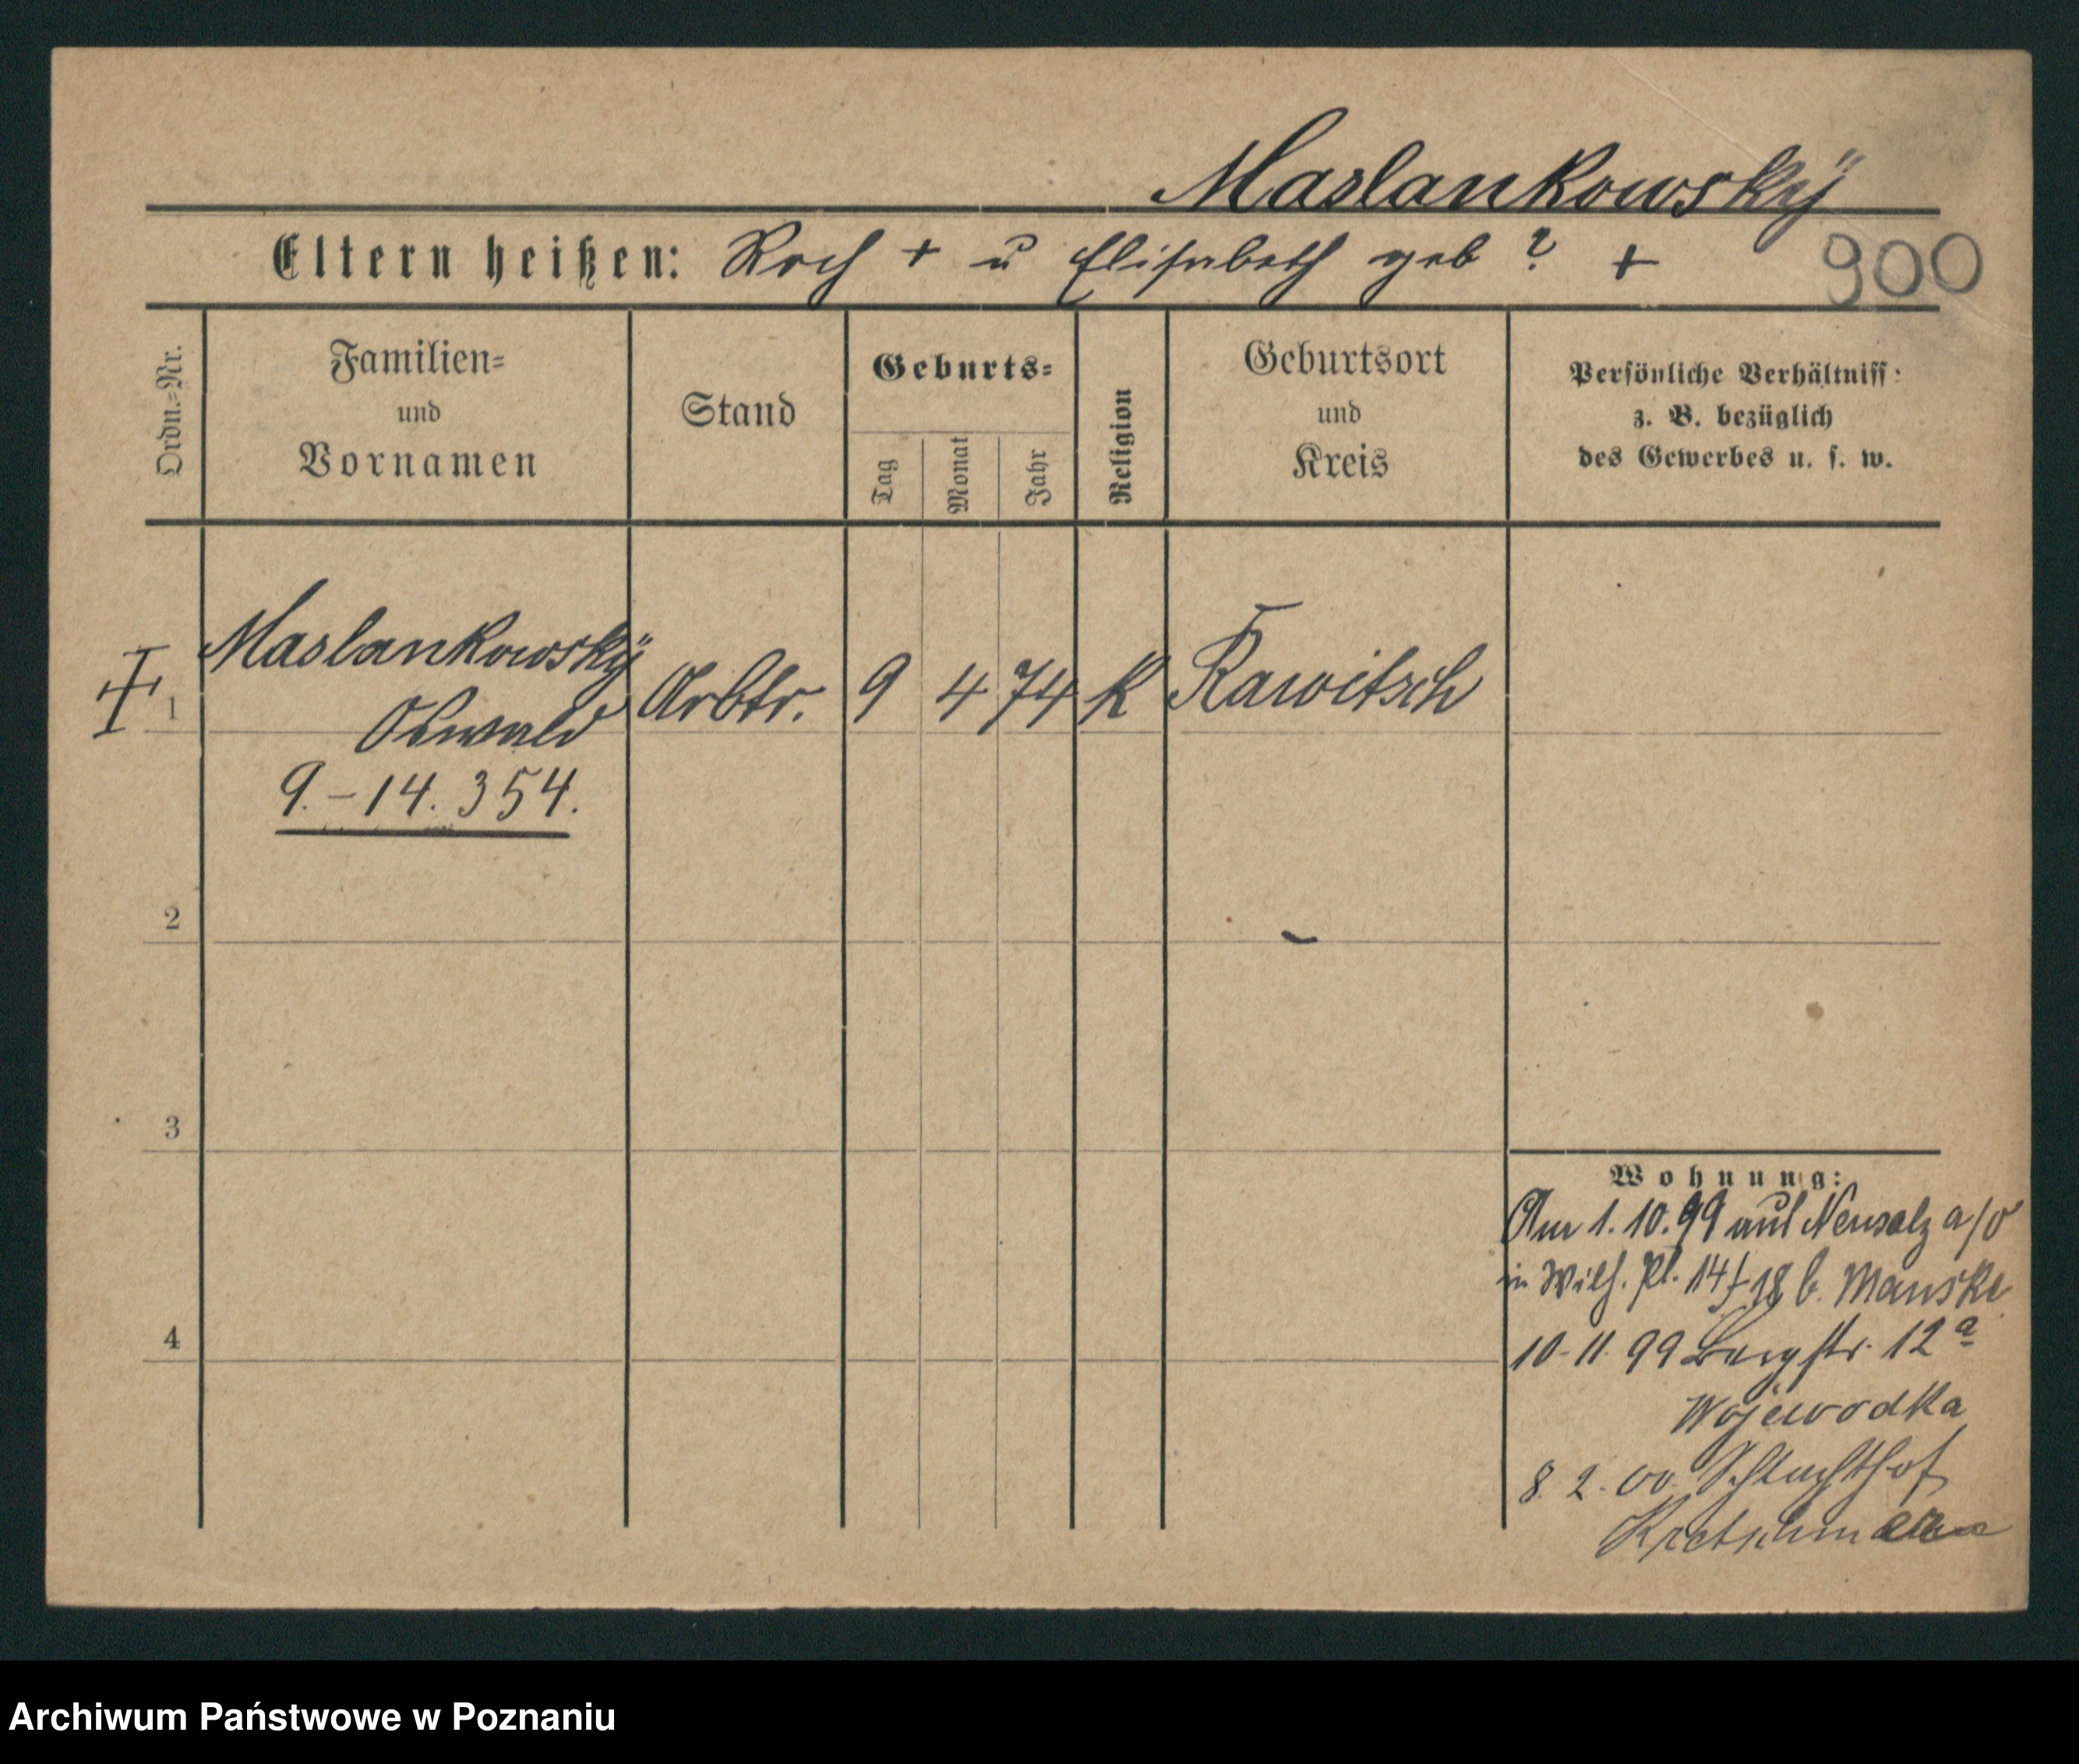 Maslankowsky
Eltern heißen: Roch + u Elisabeth geb ? +
900
Ordn.-Nr.
Familien-
und
Vornamen
Stand
Geburts-
Tag
Monat
Jahr
Religion
Geburtsort
und
Kreis
Persönliche Verhältniss
z. B. bezüglich
des Gewerbes u. s. w.
1 Maslankowsky Arbtr. 9 4 74 K Rawitsch
Oswald
9.-14.354.
2
3
4
Wohnung:
Am 1.10.99 aus Neusalz a/O
in Wilh. Pl. 14/18 b. Manske
10-11.99 Bergstr. 12a
Wojewodka
8.2.00. Schlachthof
Archiwum Państwowe w Poznaniu